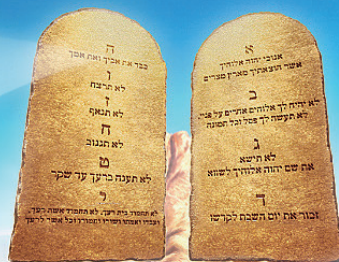 א
אנוכי יהוה אלוהיך
אשר הוצאתיך מארץ מצרים
ב
לא יהיה לך אלוהים אחרים על פני
לא תעשה לך פסל וכל תמונה
ג
לא תישא
את שם יהוה אלוהיך לשווא
ד
זכור את יום השבת לקדשו
ה
כבד את אביך ואת אמך
ו
לא תרצח
ז
לא תנאף
ח
לא תגנוב
ט
לא תענה ברעך עד שקר
י
לא תחמוד בית רעך, לא תחמוד אשת רעך,
ועבדו ואמתו ושורו וחמורו וכל אשר לרעך